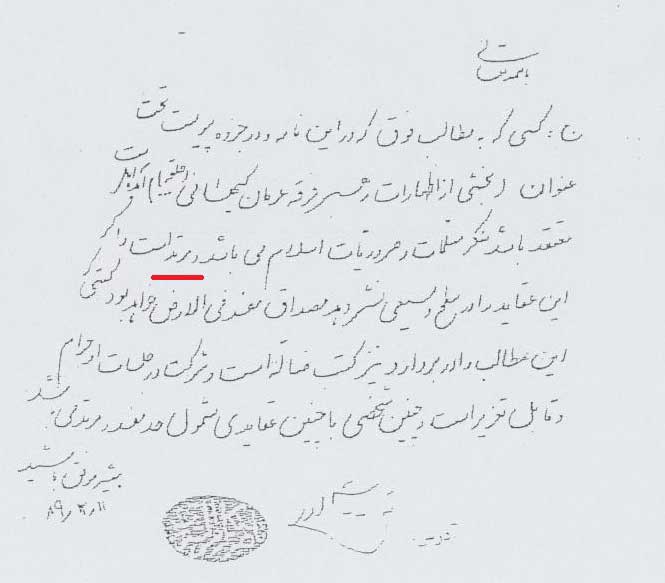 باسمه تعالی
ج: کسی که به مطالب فوق که در این نامه و در جزوه پیوست تحت
عنوان (بخشی از اظهارات رهبر فرقه عرفان کیهانی (حلقه)) آمده است
معتقد باشد منکر مسلمات و ضروریات اسلام می باشد و مرتد است و اگر
این عقاید را در سطح وسیعی نشر دهد مصداق مفسد فی الارض خواهد بود کتبی که
این مطالب را در بردارد نیز کتب ضاله است و شرکت در جلسات او حرام
و قابل تعزیر است و چنین شخصی با چنین عقایدی مشمول حد مفسد و مرتد می باشد
همیشه موفق باشید
۸۹٫۲٫۱۱